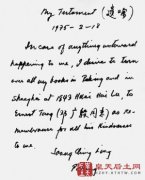 My Testament (遗嘱)
1975-2-18
In case of anything untoward
happening to me, I desire to turn
over all my books in Peking and in
Shanghai at 1843 Huai Hai Lu, to
Ernest Tong (邓广殷同志) as re-
membrance for all his kindness
to me.
Soong Ching Ling
皇天后土網